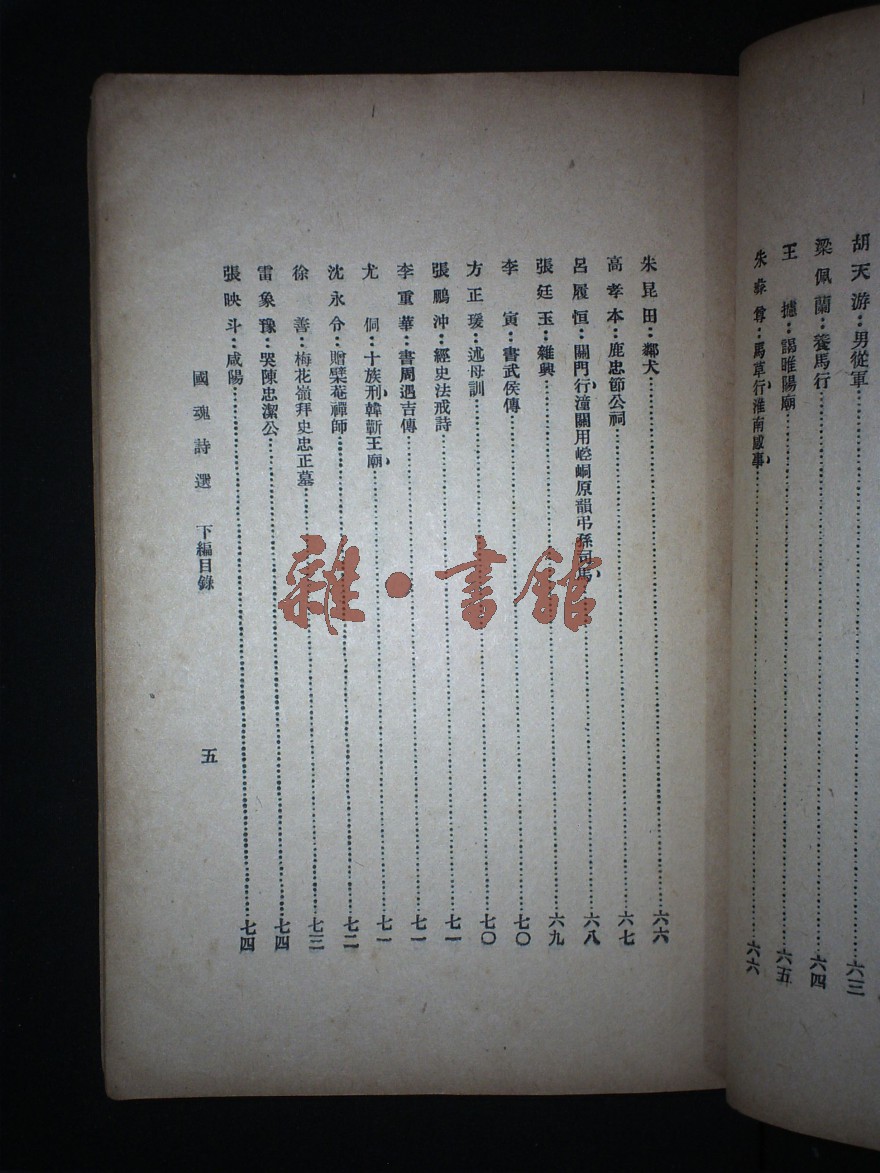 胡天游：男從軍……六三
梁佩蘭：養馬行……六四
王 攄：謁睢陽廟……六五
朱彝尊：馬草行、淮南感事、……六六
朱昆田：鄰犬……六六
高孝本：鹿忠節公祠……六七
呂履恒：關門行、潼關用崆峒原韻弔孫司馬、……六八
張廷玉：雜興……六九
李 寅：書武侯傳……七〇
方正瑗：述母訓……七〇
張鵬沖：經史法戒詩……七一
李重華：書周遇吉傳……七一
尤 侗：十族刑、韓蘄王廟、……七一
沈永令：贈檗菴禪師……七二
徐 善：梅花嶺拜史忠正墓……七三
雷象豫：哭陳忠潔公……七四
張映斗：咸陽……七四
國魂詩選 下編目錄 五
雜·書館